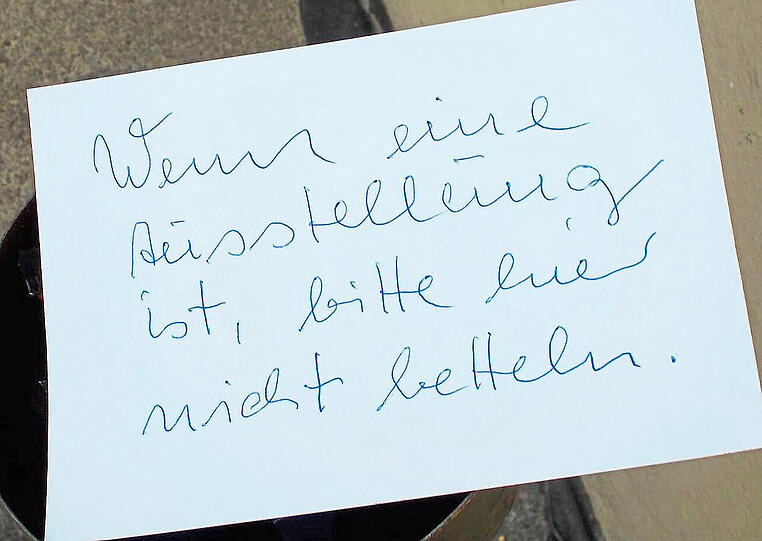 Wenn eine
Ausstellung
ist, bitte hier
nicht betteln.